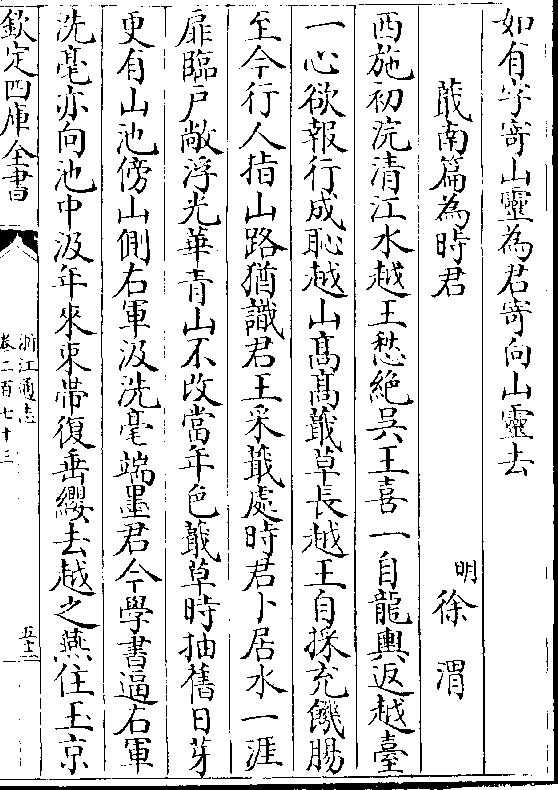 如有字寄山靈為君寄向山靈去
蕺南篇為時君
明徐渭
西施初浣清江水越王愁絶吳王喜一自龍輿返越臺
一心欲報行成恥越山髙髙蕺草長越王自採充饑腸
至今行人指山路猶識君王采蕺處時君卜居水一涯
扉臨戸敞浮光華青山不改當年色蕺草時抽舊日芽
更有山池傍山側右軍汲洗毫端墨君今學書逼右軍
洗毫亦向池中汲年來束帶復垂纓去越之燕住玉京
欽定四庫全書
浙江通志
卷二百七十三
五十三